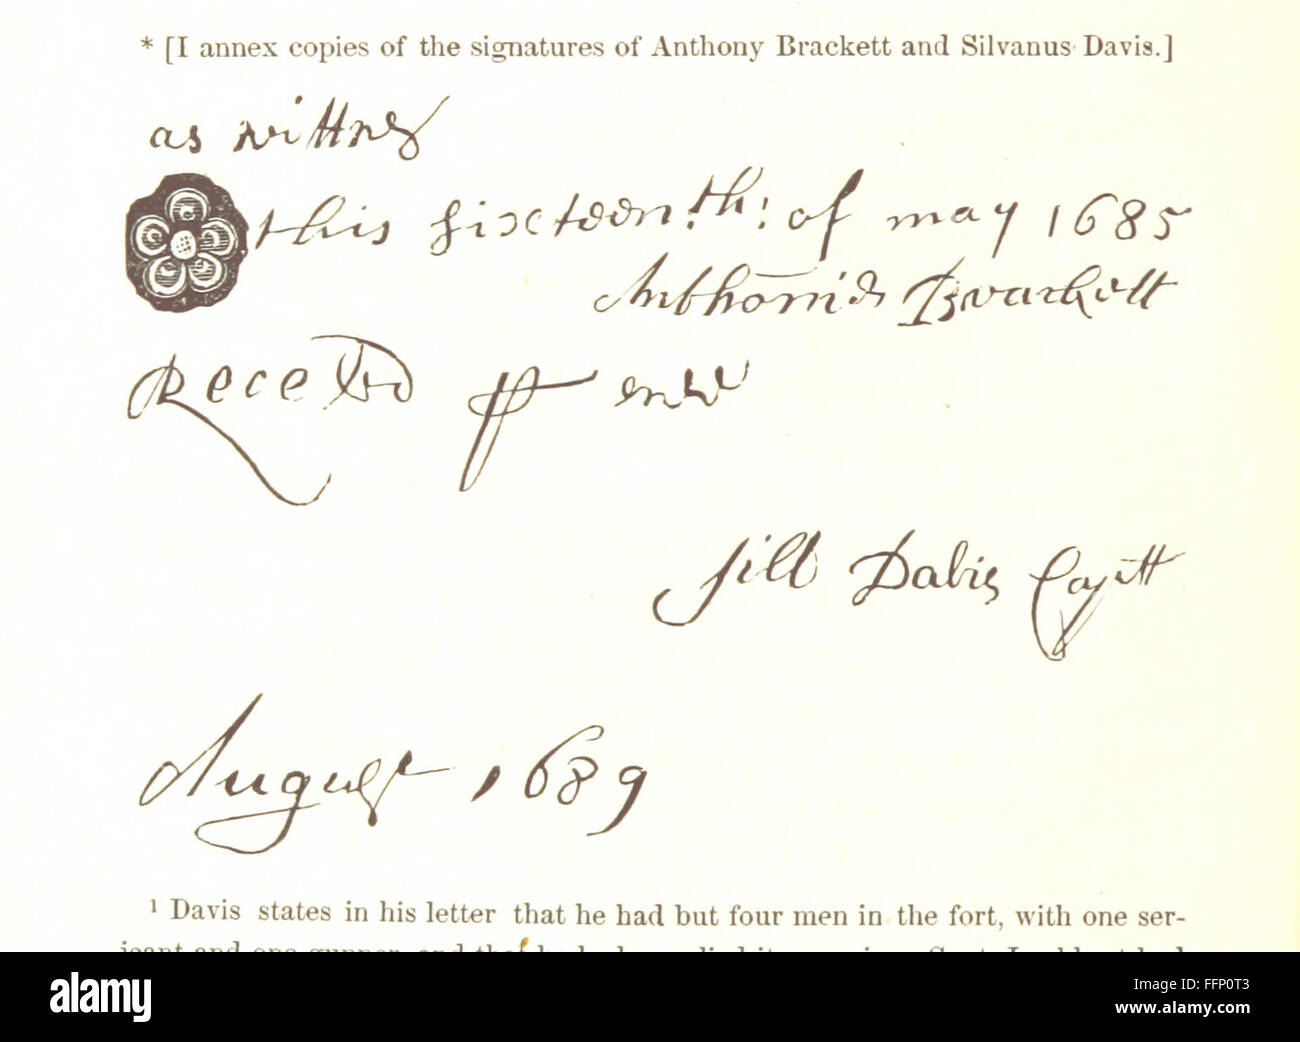 * [I annex copies of the signatures of Anthony Brackett and Silvanus Davis.]
as wittnes
this sixcteen.th: of may 1685
Anthonie Brackett
Receted me
Sill Davis Captt
August 1689
1 Davis states in his letter that he had but four men in the fort, with one ser-
alamy
alamy
Image ID: FFP0T3
www.alamy.com